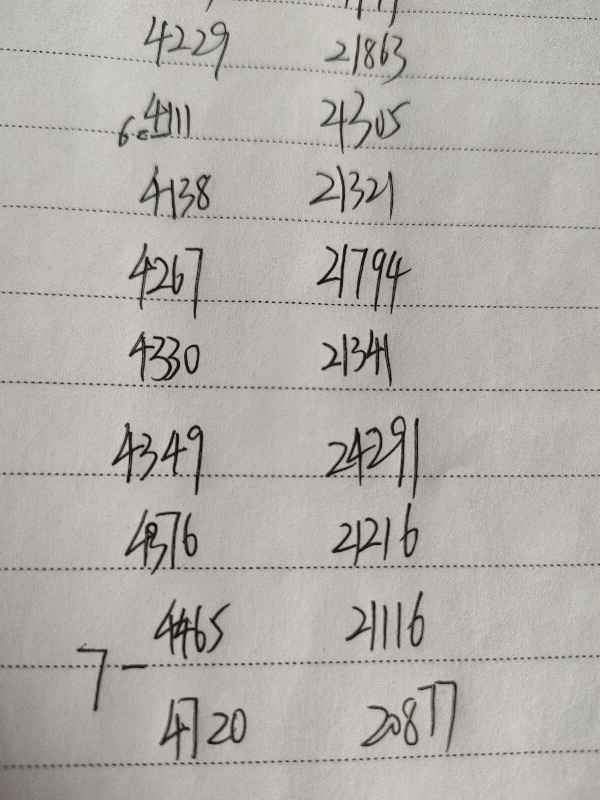 4229 21863
6. 4111 24305
4138 21321
4267 21794
4330 21341
4349 24291
4376 21216
4465 21116
7 -
4720 20877